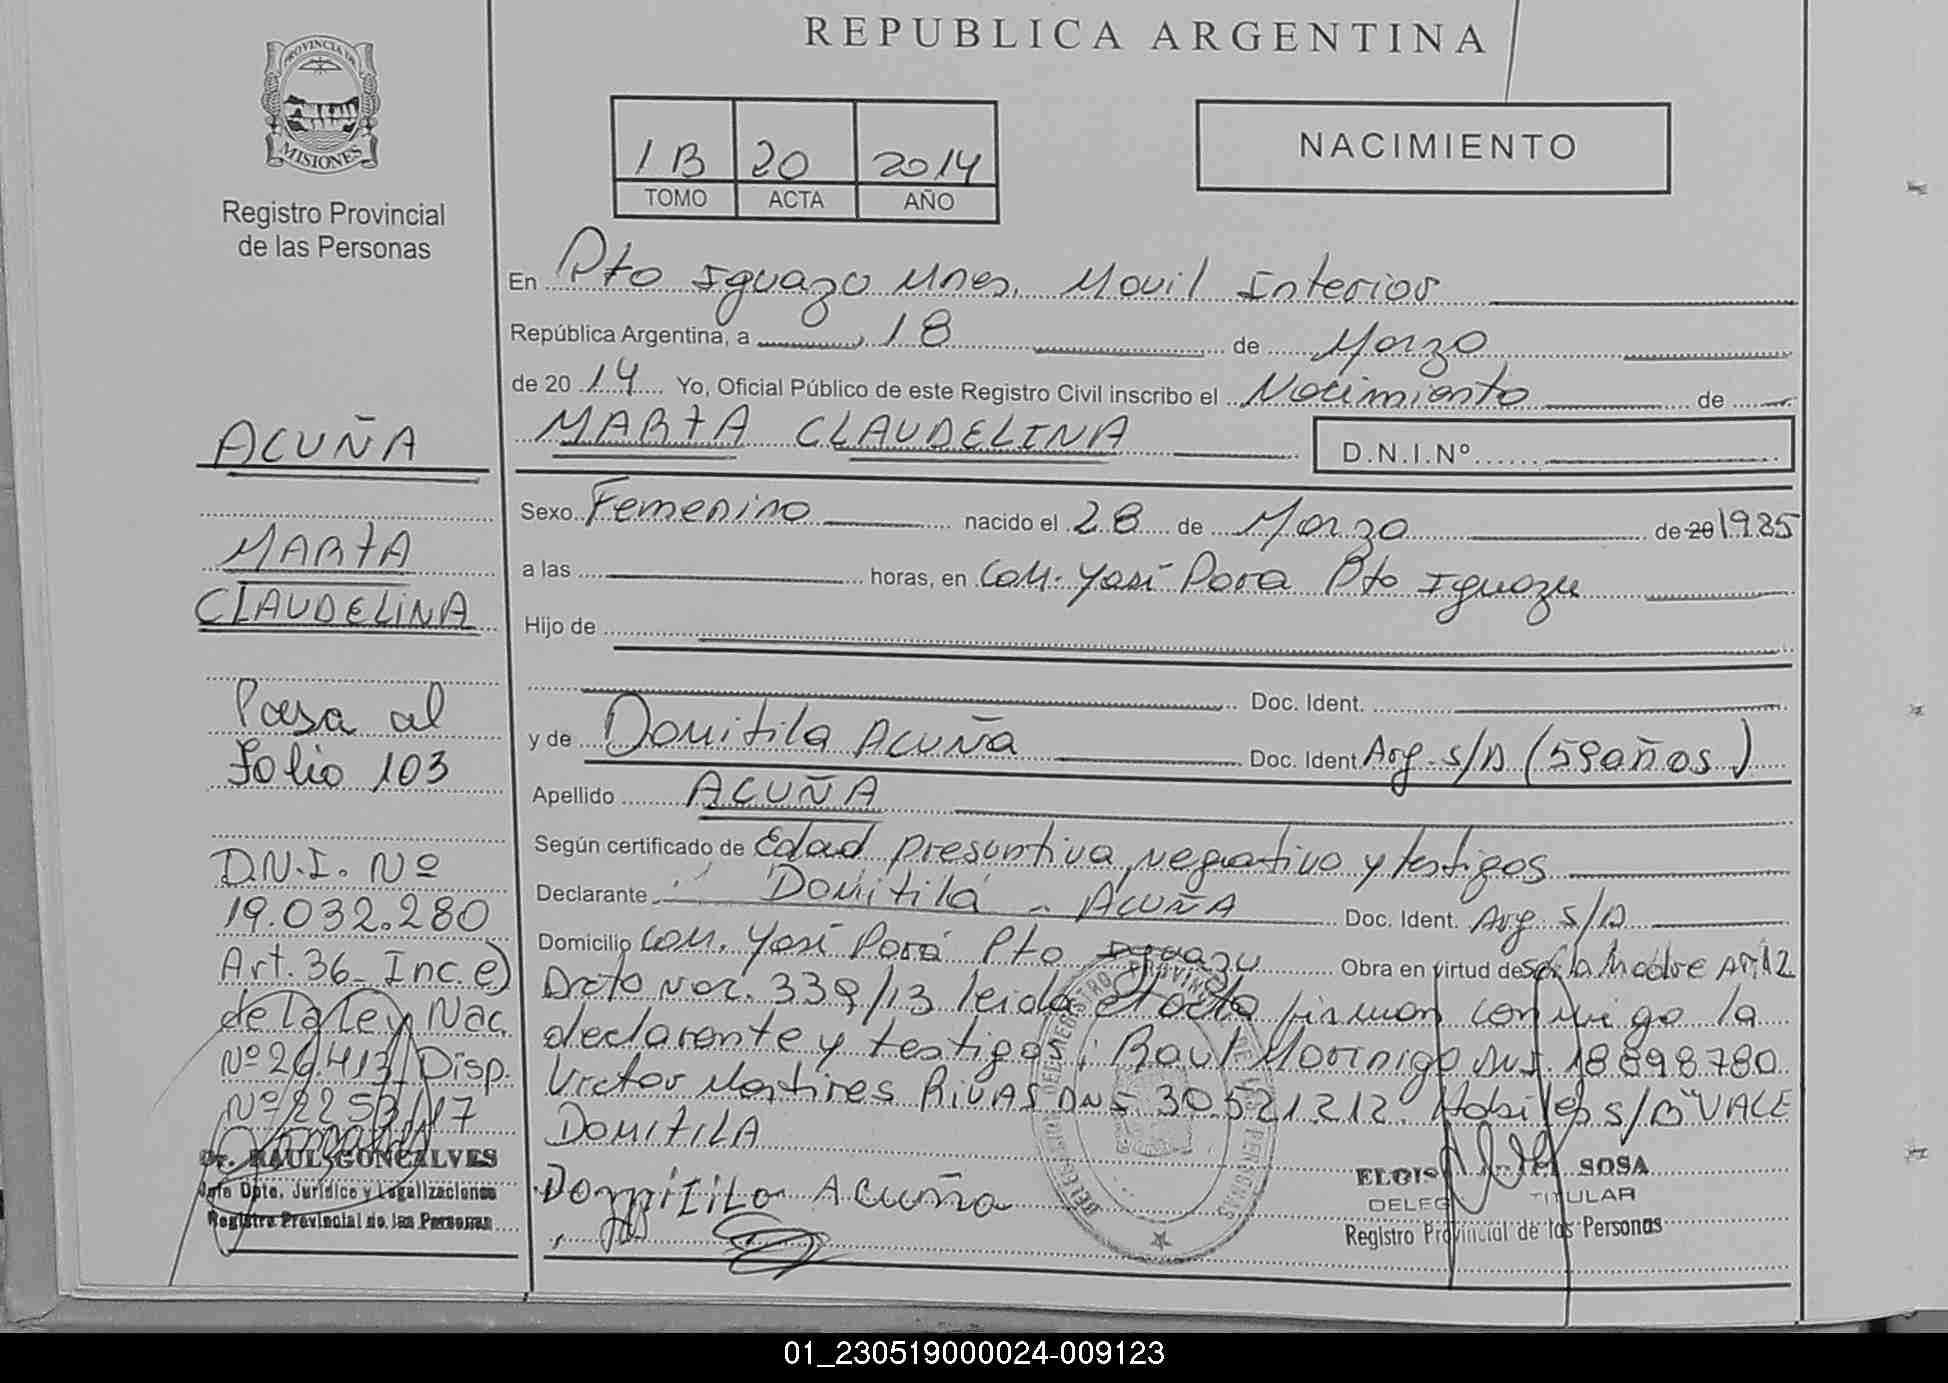 REPUBLICA ARGENTINA
PROVINCIA DE
MISIONES
Registro Provincial
de las Personas
1B 20 2014
TOMO ACTA AÑO
NACIMIENTO
En Pto Iguazu Mnes. Movil Interior
República Argentina, a 18 de Marzo
de 20 14 Yo, Oficial Público de este Registro Civil inscribo el Nacimiento de
MARTA CLAUDELINA D.N.I.Nº
Sexo Femenino nacido el 28 de Marzo de 20 1985
a las horas, en Com. Yasí Pora Pto Iguazu
Hijo de
Doc. Ident.
y de Domitila ACUÑA Doc. Ident. Arg. s/D (59 años)
Apellido ACUÑA
Según certificado de Edad presuntiva, negativo y testigos
Declarante Domitila - ACUÑA Doc. Ident. Arg. S/D
Domicilio Com. Yasí Porá Pto Iguazu Obra en virtud de Sol. la Madre Art 12
Dcto Nac. 339/13 leida el acta firman conmigo la
declarante y testigos: Raul Morinigo DNI. 18898780
Victor Martires RIVAS DNI 30.521.212. Habiles s/B "VALE
DOMITILA
Domitila Acuña
ELGIS SOSA
DELEG TITULAR
Registro Provincial de las Personas
ACUÑA
MARTA
CLAUDELINA
Pasa al
folio 103
D.N.I. Nº
19.032.280
Art. 36- Inc. e)
de la Ley Nac.
Nº 26.413 Disp.
Nº 2253/17
Dr. RAUL GONCALVES
Jefe Dpto. Jurídico y Legalizaciones
Registro Provincial de las Personas
01_230519000024-009123